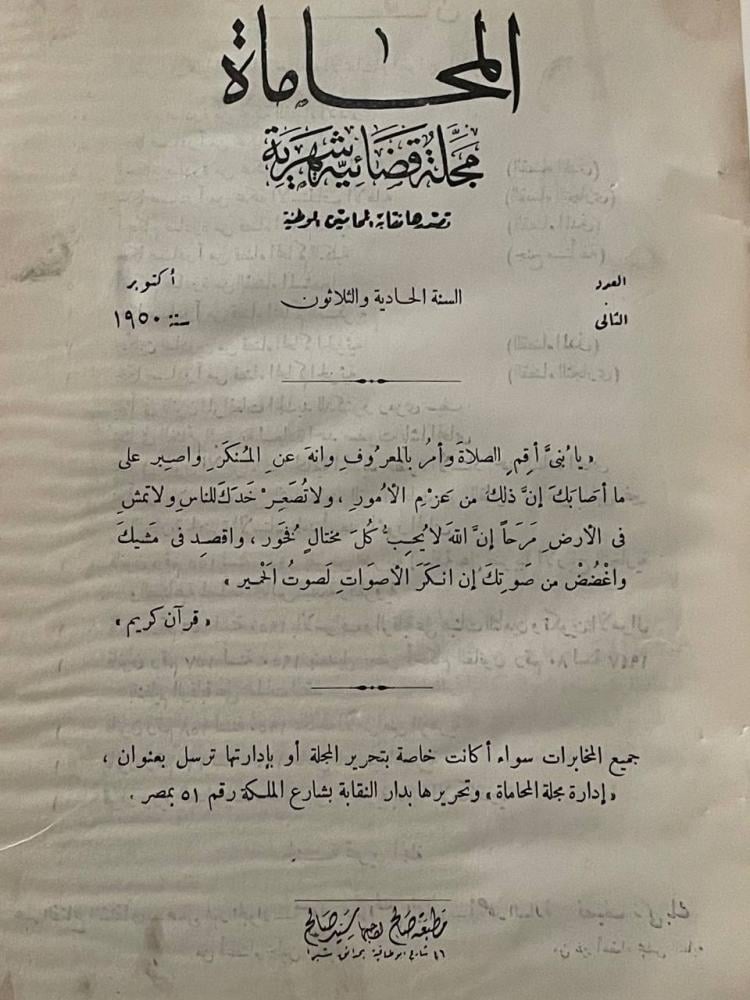 المحاماة
مجلة قضائية شهرية
تصدرها نقابة المحامين الوطنية
العدد
الثانى
السنة الحادية والثلاثون
أكتوبر
سنة ١٩٥٠
« يا بُنىَّ أقمِ الصلاةَ وأمُر بالمعرُوفِ وانهَ عنِ المُنكَرِ واصبِر على
ما أصَابَكَ إنَّ ذلكَ من عَزْمِ الأمُورِ ، ولا تُصَعِرْ خَدَكَ للناسِ ولا تمشِ
فى الأرضِ مَرَحاً إنَّ اللهَ لا يُحِبُ كُلَ مختالٍ فخَور ، واقصِد فى مَشيكَ
واغْضُضْ من صَوتِكَ إن انكَرَ الأصوَاتِ لَصوتُ الحَمير »
« قرآن كريم »
جميع المخابرات سواء أكانت خاصة بتحرير المجلة أو بإدارتها ترسل بعنوان ،
« إدارة مجلة المحاماة » وتحريرها بدار النقابة بشارع الملكة رقم ٥١ بمصر .
مطبعة صالح لصاحبها سيد صالح